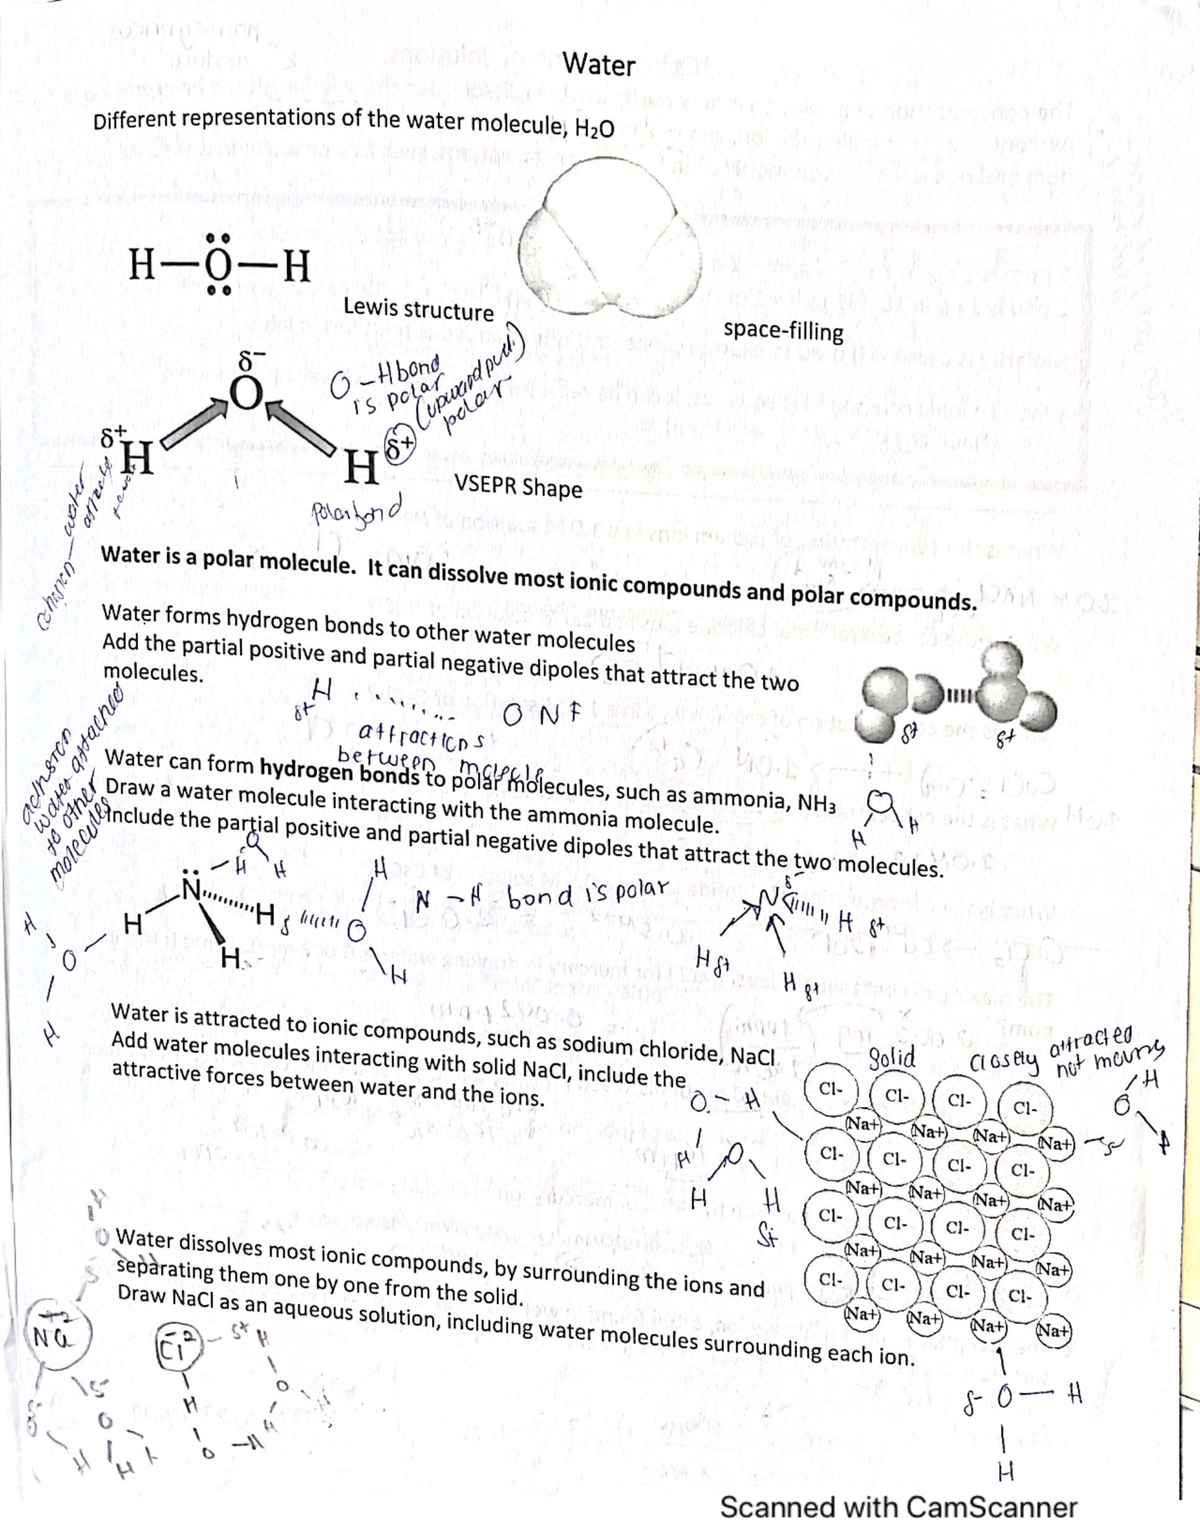 Water
Different representations of the water molecule, H₂O
H—Ö—H
Lewis structure
space-filling
δ-
O
δ+
H
H
δ+
O-H bond
is polar
(upward pull)
polar
VSEPR Shape
polar bond
cohesion - water
Water is a polar molecule. It can dissolve most ionic compounds and polar compounds.
Water forms hydrogen bonds to other water molecules
Add the partial positive and partial negative dipoles that attract the two
molecules.
H ........ O N F
δ+
attractions
between molecule
δ+
δ+
O
H
H
adhesion
water attached
to other
molecules
Water can form hydrogen bonds to polar molecules, such as ammonia, NH3
Draw a water molecule interacting with the ammonia molecule.
Include the partial positive and partial negative dipoles that attract the two molecules.
O
H H
H
N
H
H
H
O
H
N-H bond is polar
δ-
N
H δ+
H δ+
H δ+
H
O
H
Water is attracted to ionic compounds, such as sodium chloride, NaCl
Add water molecules interacting with solid NaCl, include the
attractive forces between water and the ions.
Solid
closely attracted
not moving
O - H
H
O
H H
δ+
H
O
Cl- Cl- Cl- Cl-
Na+ Na+ Na+ Na+
Cl- Cl- Cl- Cl-
Na+ Na+ Na+ Na+
Cl- Cl- Cl- Cl-
Na+ Na+ Na+ Na+
Cl- Cl- Cl- Cl-
Na+ Na+ Na+ Na+
δ- O — H
H
Water dissolves most ionic compounds, by surrounding the ions and
separating them one by one from the solid.
Draw NaCl as an aqueous solution, including water molecules surrounding each ion.
Na
Cl
δ+ H
O
H
O
H
O
H H
Scanned with CamScanner